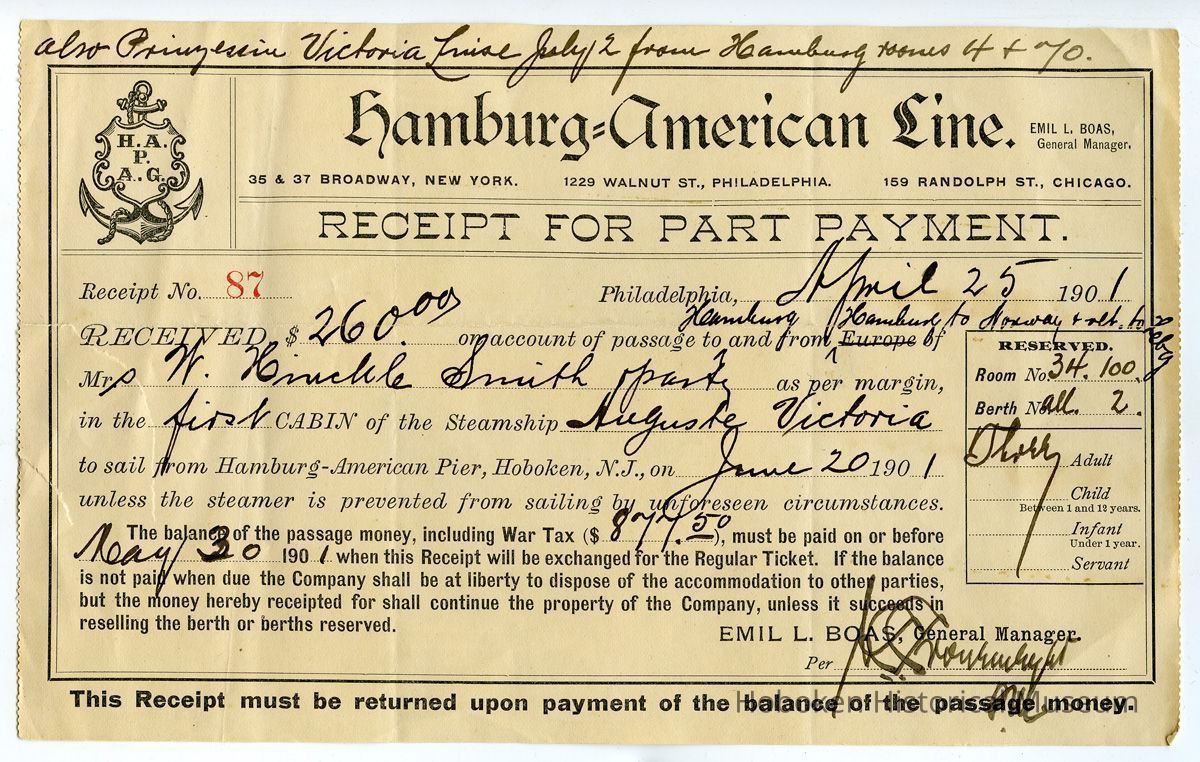 also Prinzessin Victoria Luise July 2 from Hamburg rooms 4 + 70.
H.A.
P.
A.G.
Hamburg=American Line.
EMIL L. BOAS,
General Manager.
35 & 37 BROADWAY, NEW YORK. 1229 WALNUT ST., PHILADELPHIA. 159 RANDOLPH ST., CHICAGO.
RECEIPT FOR PART PAYMENT.
Receipt No. 87 Philadelphia, April 25 1901
Hamburg Hamburg to Norway & ret. to
RECEIVED $ 260.00 on account of passage to and from Europe of
Mrs W. Hinckle Smith party as per margin,
in the first CABIN of the Steamship Auguste Victoria
to sail from Hamburg-American Pier, Hoboken, N.J., on June 20 1901
unless the steamer is prevented from sailing by unforeseen circumstances.
The balance of the passage money, including War Tax ($ 877.50), must be paid on or before
May 30 1901 when this Receipt will be exchanged for the Regular Ticket. If the balance
is not paid when due the Company shall be at liberty to dispose of the accommodation to other parties,
but the money hereby receipted for shall continue the property of the Company, unless it succeeds in
reselling the berth or berths reserved.
RESERVED.
Room No. 34. 100.
Berth No. all. 2.
Adult
Child
Between 1 and 12 years.
Infant
Under 1 year.
Servant
EMIL L. BOAS, General Manager.
Per
This Receipt must be returned upon payment of the balance of the passage money.
Hoboken Historical Museum